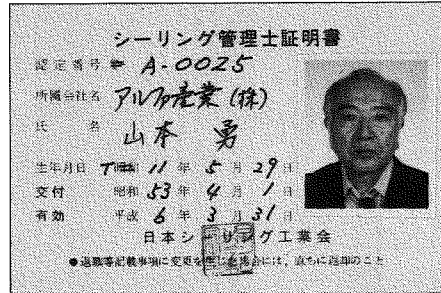 シーリング管理士証明書
認定番号 A-0025
所属会社名 アルファ産業(株)
氏 名 山本 勇
生年月日 T 昭和 11 年 5 月 29 日
交付 昭和 53 年 4 月 1 日
有効 平成 6 年 3 月 31 日
日本シーリング工業会
●退職等記載事項に変更を生じた場合には、直ちに返却のこと